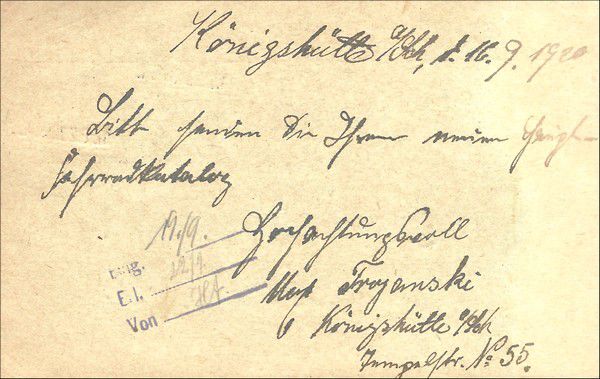 Königshütte O/Sch, d. 16.9.1920
Bitte senden Sie Ihren neuen Haupt-
Fahrradkatalog
Hochachtungsvoll
Max Trojanski
Königshütte O/Sch
Tempelstr. No 55.
19./9.
Eing. 22/9
E.I.
Von